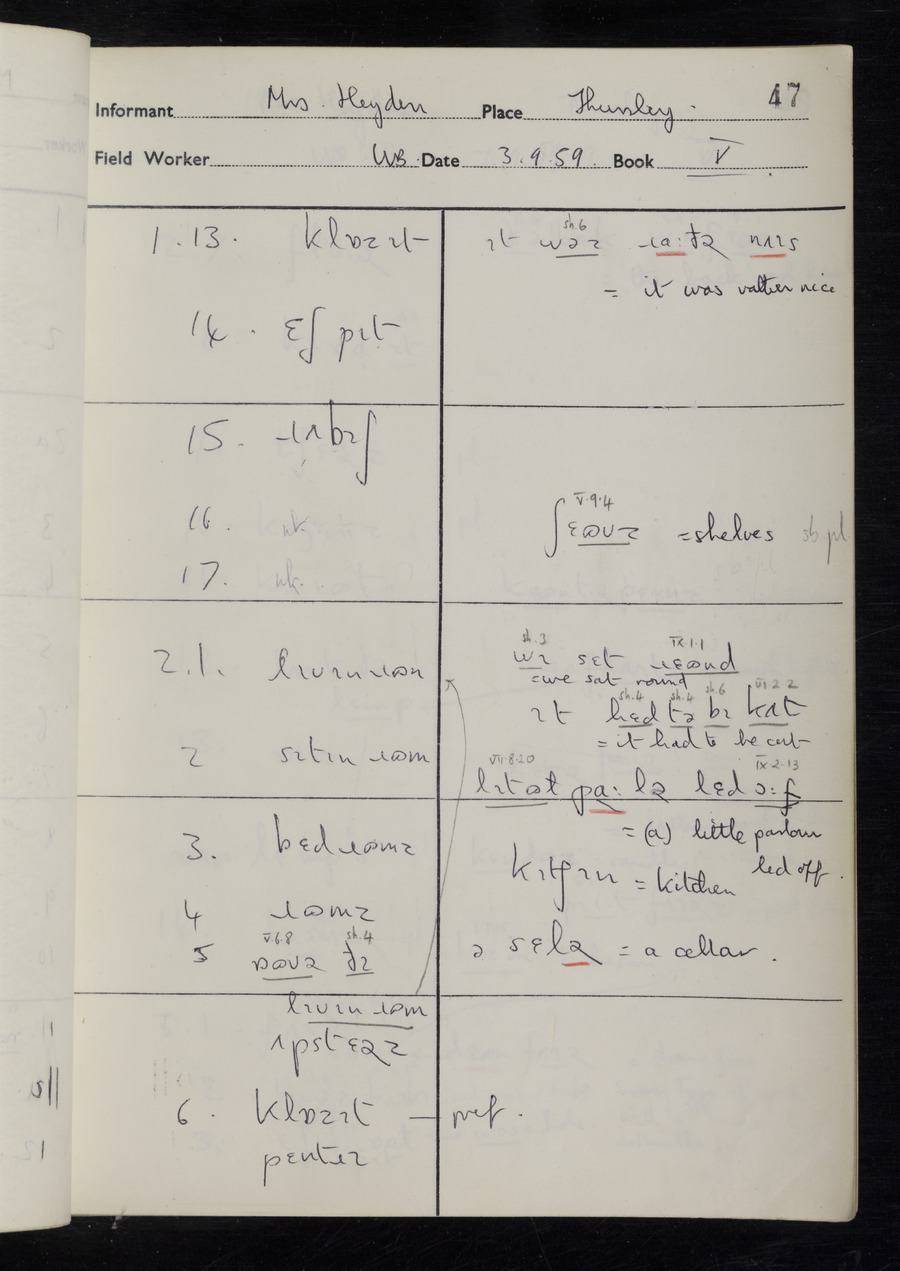 47
Informant Mrs. Heyden Place Thursley.
Field Worker WB. Date 3.9.59. Book V
1.13. klɒzɪt
sh.6
ɪt wəz ɹɑ:ðə nʌɪs
= it was rather nice
14. ɛʃ pɪt
15. ɹʌbɪʃ
16. nk.
V.9.4
ʃɛʊvz = shelves sb pl
17. nk.
2.1. lɪvɪnɹʊm
sh.3 IX.1.1
wɪ sɛt ɹɛʊnd
= we sat round
sh.4 sh.4 sh.6 VI.2.2
ɪt hɛd tə bɪ kʌt
= it had to be cut
2 sɪtɪnɹʊm
VII.8.20 IX.2.13
lɪtʊl pɑ:lə lɛd ɔ:f
= (a) little parlour led off.
3. bɛdɹʊmz
kɪtʃɪn = kitchen
4 ɹʊmz
V.6.8 sh.4
5 ðə
ə sɛlə = a cellar.
lɪvɪnɹʊm
ʌpstɛəz
6. klɒzɪt — pref.